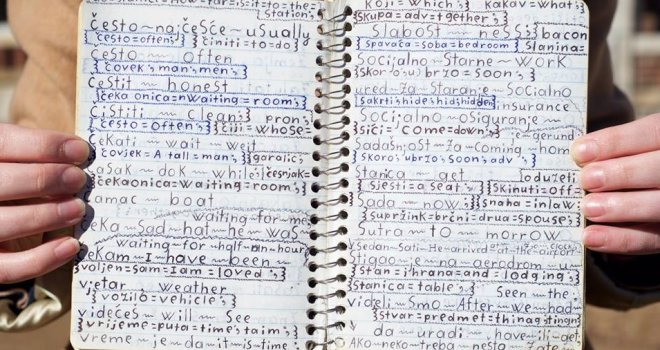 -How=far=is=it=to=the=
Station;
često~najčešće~usually
{često=often;} {činiti=to=do}
često ~ often
{čovek;man;men;}
čestit ~ honest
{čeka onica=nwaiting=room;}
čistiti ~ clean; pron;
{često=often;} {čiji=whose=
čekati ~ wait ~ weit
{čovjek=A tall=man;} {garalic;
čašak ~ dok ~ while {česnjak=
{čekaonica=waiting=room;}
čamac ~ boat
waiting for me
čeka~Sad~hat~he~was
waiting~for~half~an~hour
čekam~I~have~been~
{voljen=sam=I am=loved;}
vjetar ~ weather
{vozilo=vehicle;}
videćeš ~ will ~ See
{vrijeme=puta=time's taim;}
vreme~je~da~it~is~time
koji=Which; kakav=what;
{skupa=adv=together;}
Slabost ~ ness {bacon
{Spavaća=soba=bedroom} {Slanina=
Socijalno~Starne~work
{skoro(u)brzo=soon;}
ured~za~Staranje~Socialno
{sakriti;hide;hid;hidden} insurance
Socijalno~osiguranje~
{sići=come=down;} e~gerund
Sadašnjost~za~coming~home
{skoro'ubrzo'soon;adv'}
Stanica ~ get {oduzeti
{sjesti=a seat;} {skinuti=off=
Sada ~ now {snaha=inlaw
{supružnik=bračni=drug=spouse;}
Sutra ~ to ~ morrow
Sedam~Sati~He~arrived~in~the~airport
Stigao~je~na~aerodrom~u
{stan=ihrana=and=lodging;}
{stanica=table;} Seen~the
videli~Smo~After~we~had
{stvar=predmet=thing
da~uradi~have~ili~
Ako~neko~treba~nešto~